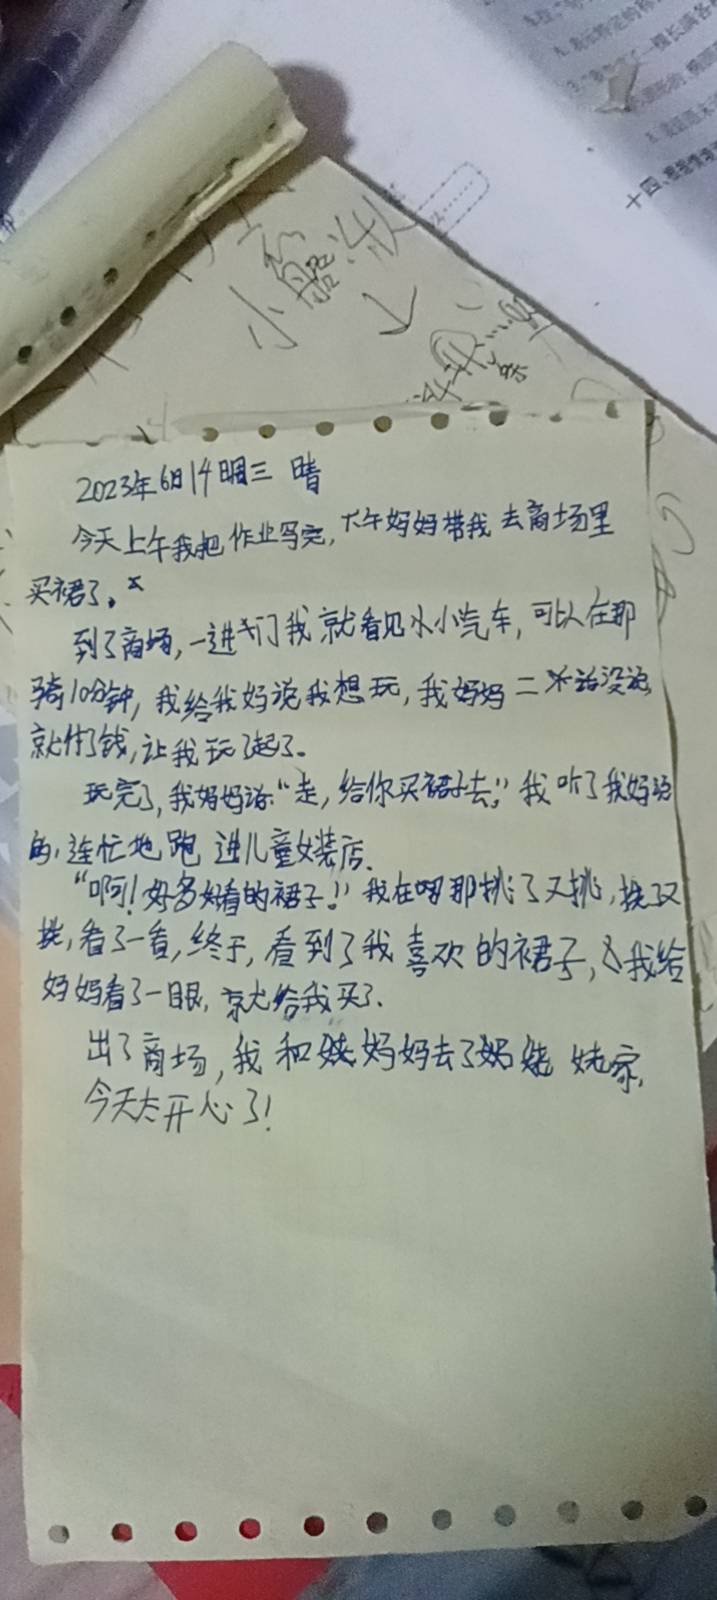 小
2023年6月14日周三 晴
今天上午我把作业写完,下午妈妈带我去商场里
买裙了。
到了商场,一进大门我就看见小小汽车,可以在那
骑10分钟,我给我妈说我想玩,我妈妈二不话没说
就付了钱,让我玩了起了.
玩完了,我妈妈说:“走,给你买裙子去。”我听了我妈说
的,连忙地跑 进儿童女装店.
“啊!好多好看的裙子!”我在那挑了又挑,挑了又
挑,看了一看,终于,看到了我喜欢的裙子,我给
妈妈看了一眼,就给我买了.
出了商场,我和妈妈去了姥姥家,
今天太开心了!
十四、